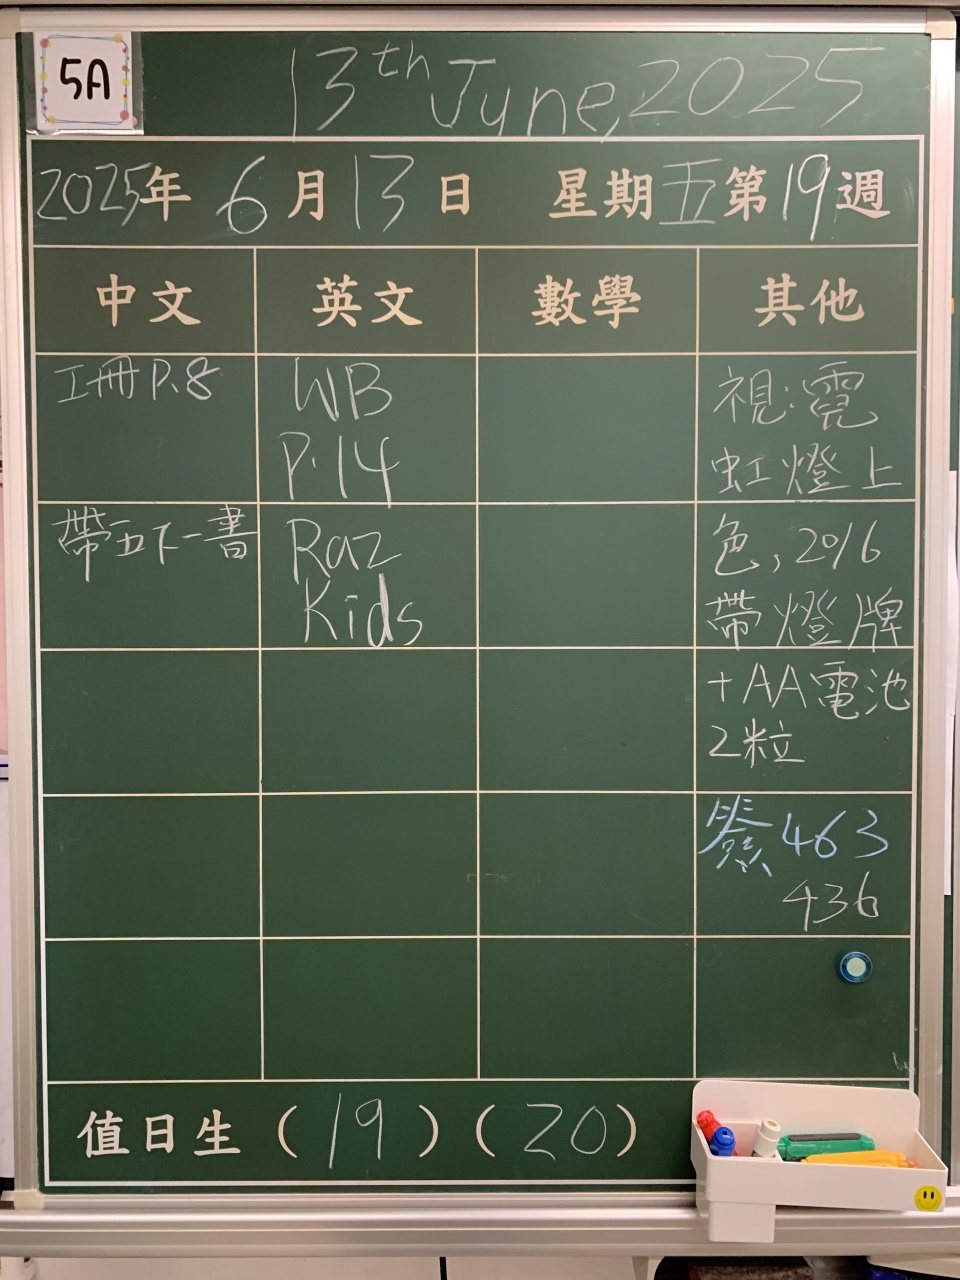 5A
13th June, 2025
2025年 6月13日 星期五第19週
中文 英文 數學 其他
工冊 P.8
帶五下一書
WB
P.14
Raz
Kids
視:霓
虹燈上
色, 20/6
帶燈牌
+AA電池
2粒
463
436
值日生 (19) (20)